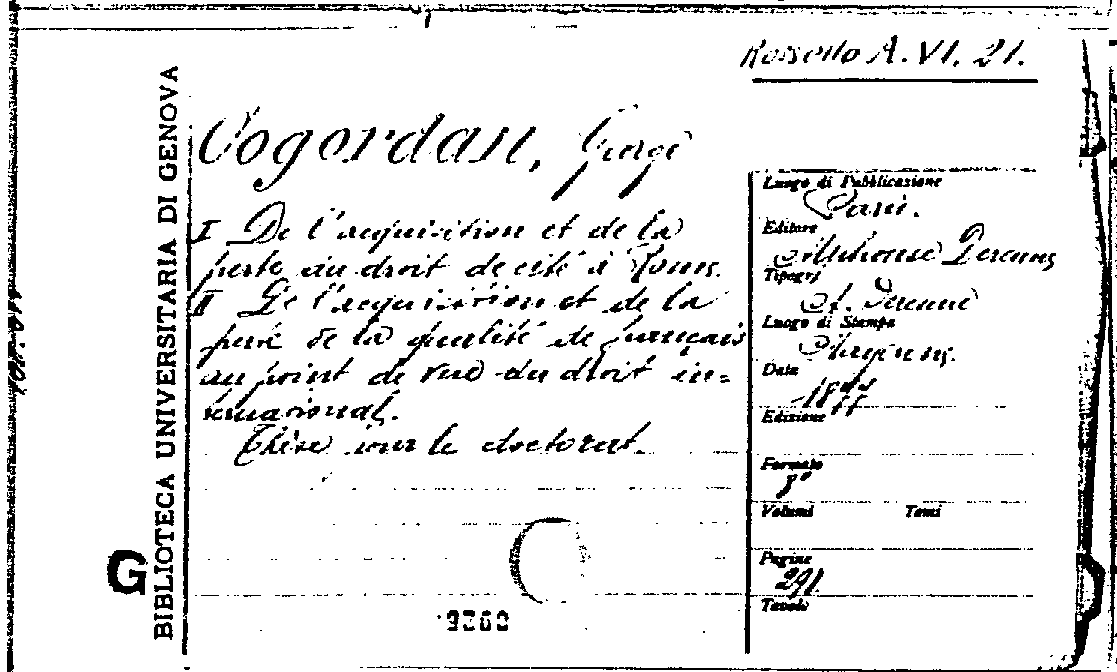 Rossello A. VI. 21.
BIBLIOTECA UNIVERSITARIA DI GENOVA
G
Cogordan, George
I De l'acquisition et de la
perte du droit de cité à Rome.
II De l'acquisition et de la
perte de la qualité de français
au point de vue du droit in=
ternational.
Thèse pour le doctorat.
Luogo di Pubblicazione
Paris.
Editore
Alphonse Derenne
Tipogr.
A. Derenne
Luogo di Stampa
Mayenne.
Data
1877
Edizione
Formato
8°
Volumi Tomi
Pagine
291
Tavole